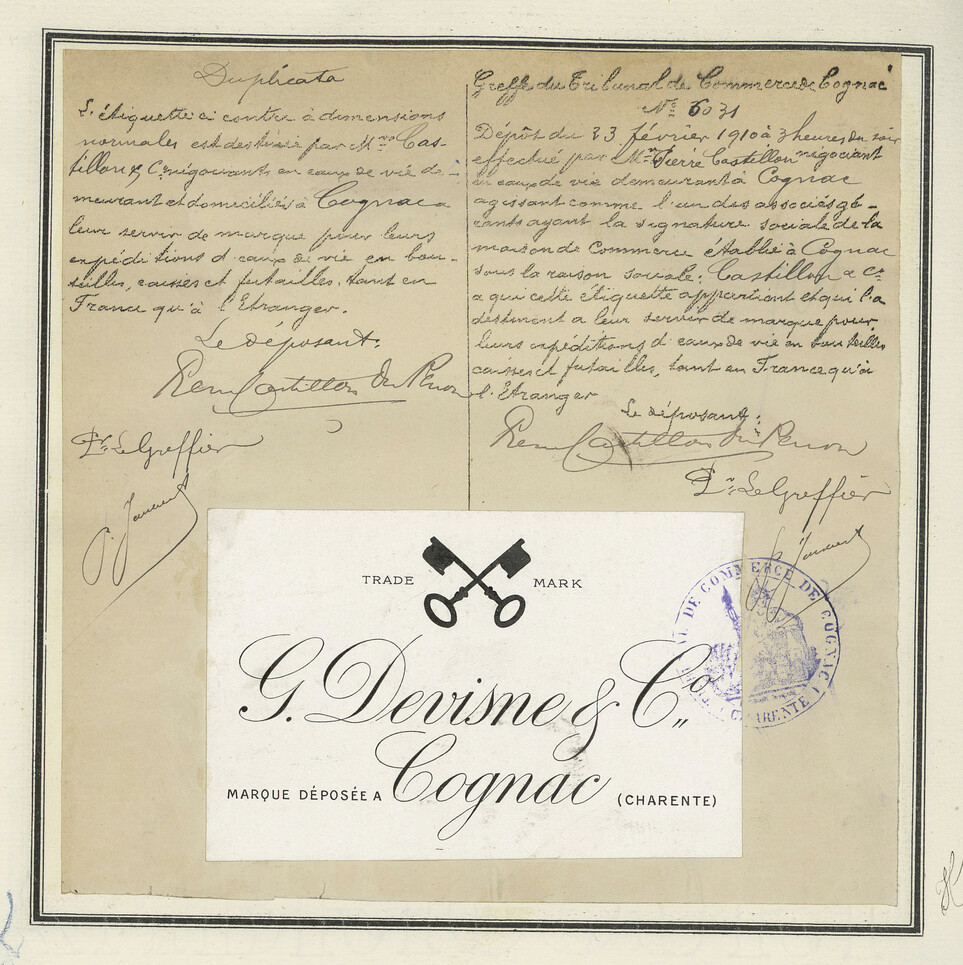 Duplicata
L'étiquette ci contre à dimensions
normales est destinée par Mrs Cas-
tillon & Cie négociants en eaux de vie de-
meurant et domiciliés à Cognac a
leur servir de marque pour leurs
expéditions d'eaux de vie en bou-
teilles, caisses et futailles, tant en
France qu'à l'Etranger.
Le déposant.
Pierre Castillon du Perron
Pr Le Greffier
Greffe du Tribunal de Commerce de Cognac
No 6031
Dépôt du 23 février 1910 à 3 heures du soir
effectué par Mr Pierre Castillon négociant
en eaux de vie demeurant à Cognac
agissant comme l'un des associés gé-
rants ayant la signature sociale de la
maison de Commerce établie à Cognac
sous la raison sociale: Castillon & Cie
a qui cette étiquette appartient et qui l'a
destinent a leur servir de marque pour
leurs expéditions d'eaux de vie en bouteilles
caisses et futailles, tant en France qu'à
l'Etranger
Le déposant:
Pierre Castillon du Perron
Pr Le Greffier
TRADE MARK
G. Devisne & Co
MARQUE DÉPOSÉE A Cognac (CHARENTE)
DE COMMERCE DE COGNAC
CHARENTE